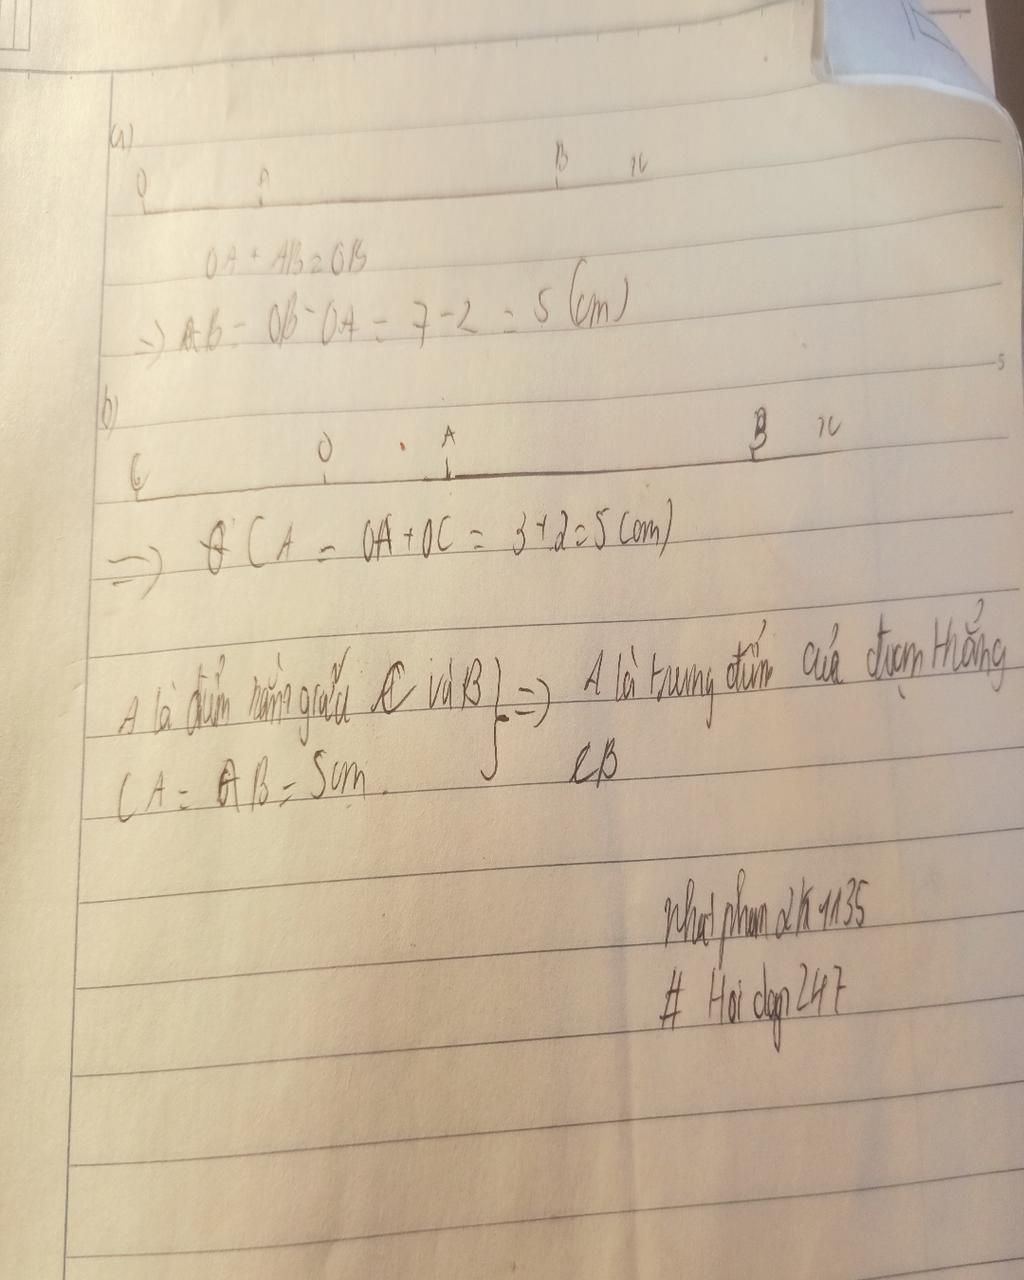 a)
O A B x
OA + AB = OB
=> AB = OB - OA = 7 - 2 = 5 (cm)
b)
C O A B x
=> CA = OA + OC = 3 + 2 = 5 (cm)
A là điểm nằm giữa C và B } => A là trung điểm của đoạn thẳng
CA = AB = 5cm. CB
nhat phan 2k1135
# Hoi dap 247